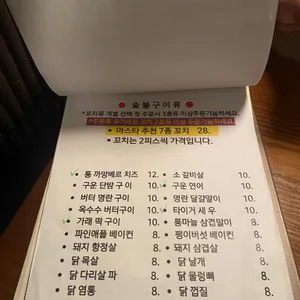 ● 숯불구이류 ●
*꼬치를 개별 선택 첫 주문시 3종류 이상주문가능하세요.
*주문후 추가주문 꼬치 2종류 이상 주문가능하세요
● 마스타 추천 7종 꼬치 28.
● 꼬치는 2피스씩 가격입니다.
● 통 까망베르 치즈 12. ● 소 갈비살 10.
● 구운 단팥 구이 10. ● 구운 연어 10.
● 버터 명란 구이 10. ● 명란 달걀말이 10.
● 옥수수 버터구이 10. ● 타이거 새우 10.
● 가래 떡 구이 10. ● 통마늘 삼겹말이 8.
● 파인애플 베이컨 8. ● 팽이버섯 베이컨 8.
● 돼지 항정살 8. ● 돼지 삼겹살 8.
● 닭 목살 8. ● 닭 날개 8.
● 닭 다리살 파 8. ● 닭 물렁뼈 8.
● 닭 염통 8. ● 닭 껍질 8.